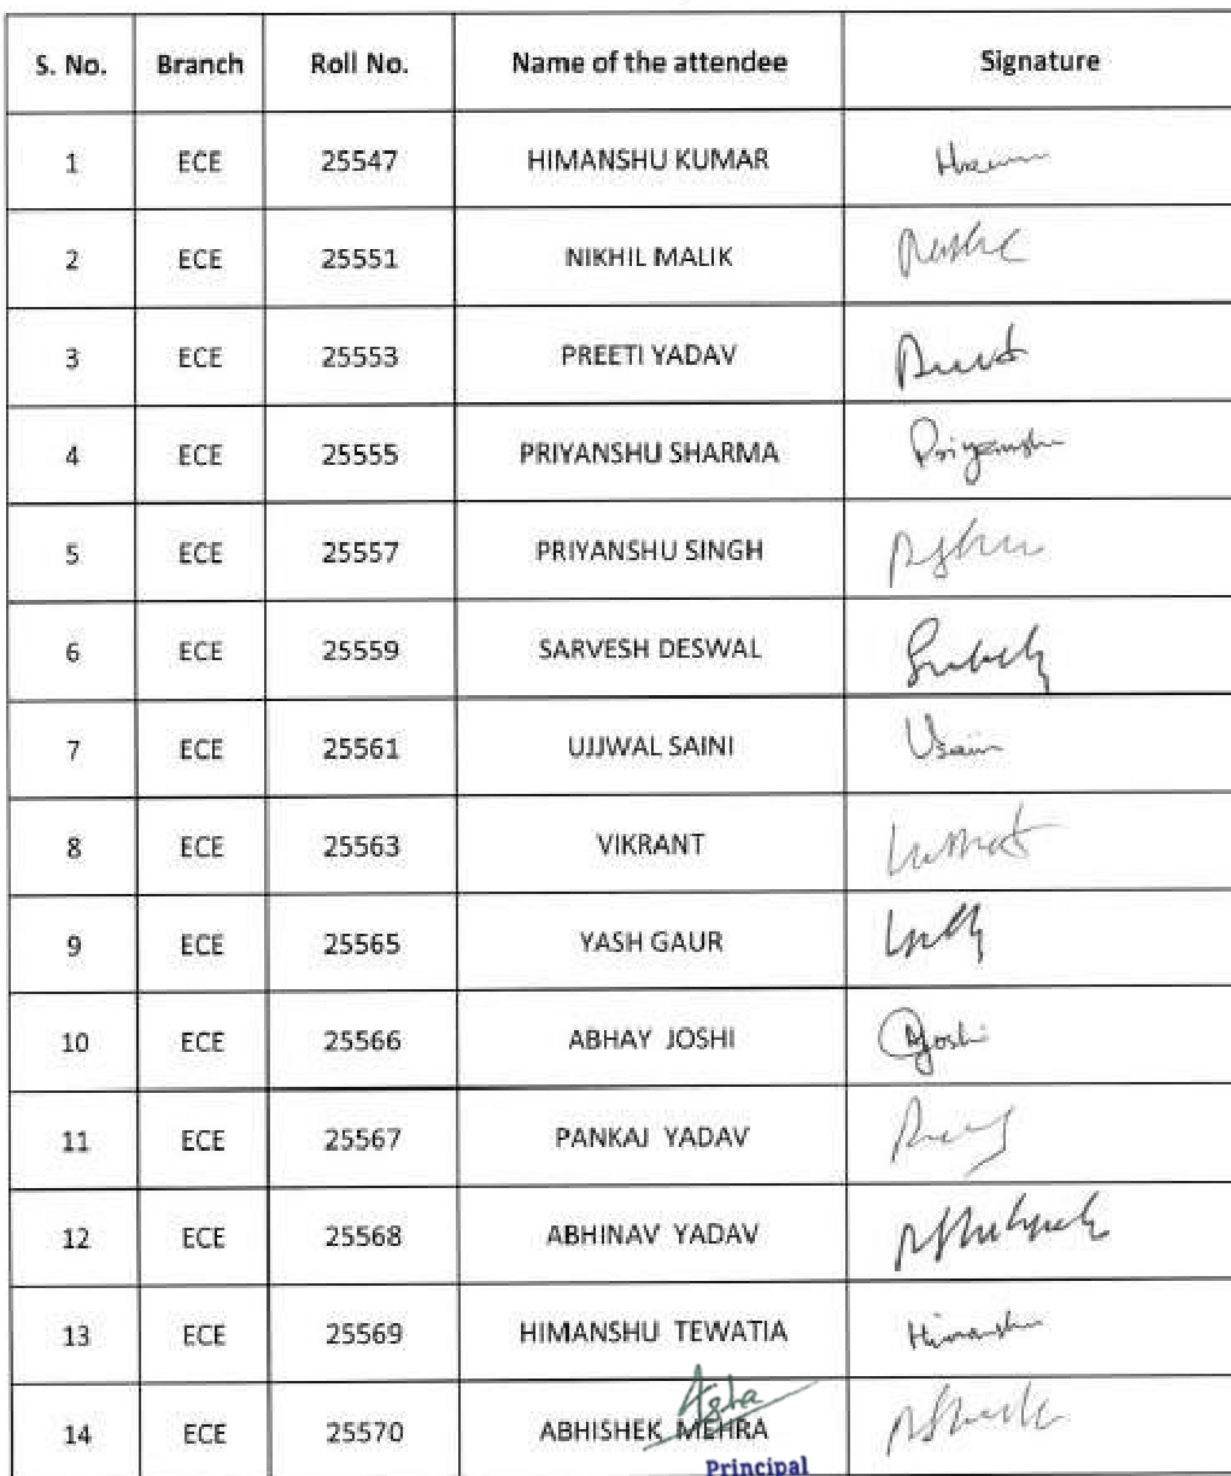 S. No. Branch Roll No. Name of the attendee Signature
1 ECE 25547 HIMANSHU KUMAR
2 ECE 25551 NIKHIL MALIK
3 ECE 25553 PREETI YADAV
4 ECE 25555 PRIYANSHU SHARMA Priyanshu
5 ECE 25557 PRIYANSHU SINGH
6 ECE 25559 SARVESH DESWAL
7 ECE 25561 UJJWAL SAINI Usaini
8 ECE 25563 VIKRANT
9 ECE 25565 YASH GAUR
10 ECE 25566 ABHAY JOSHI AJoshi
11 ECE 25567 PANKAJ YADAV
12 ECE 25568 ABHINAV YADAV
13 ECE 25569 HIMANSHU TEWATIA Himanshu
14 ECE 25570 ABHISHEK MEHRA
Principal